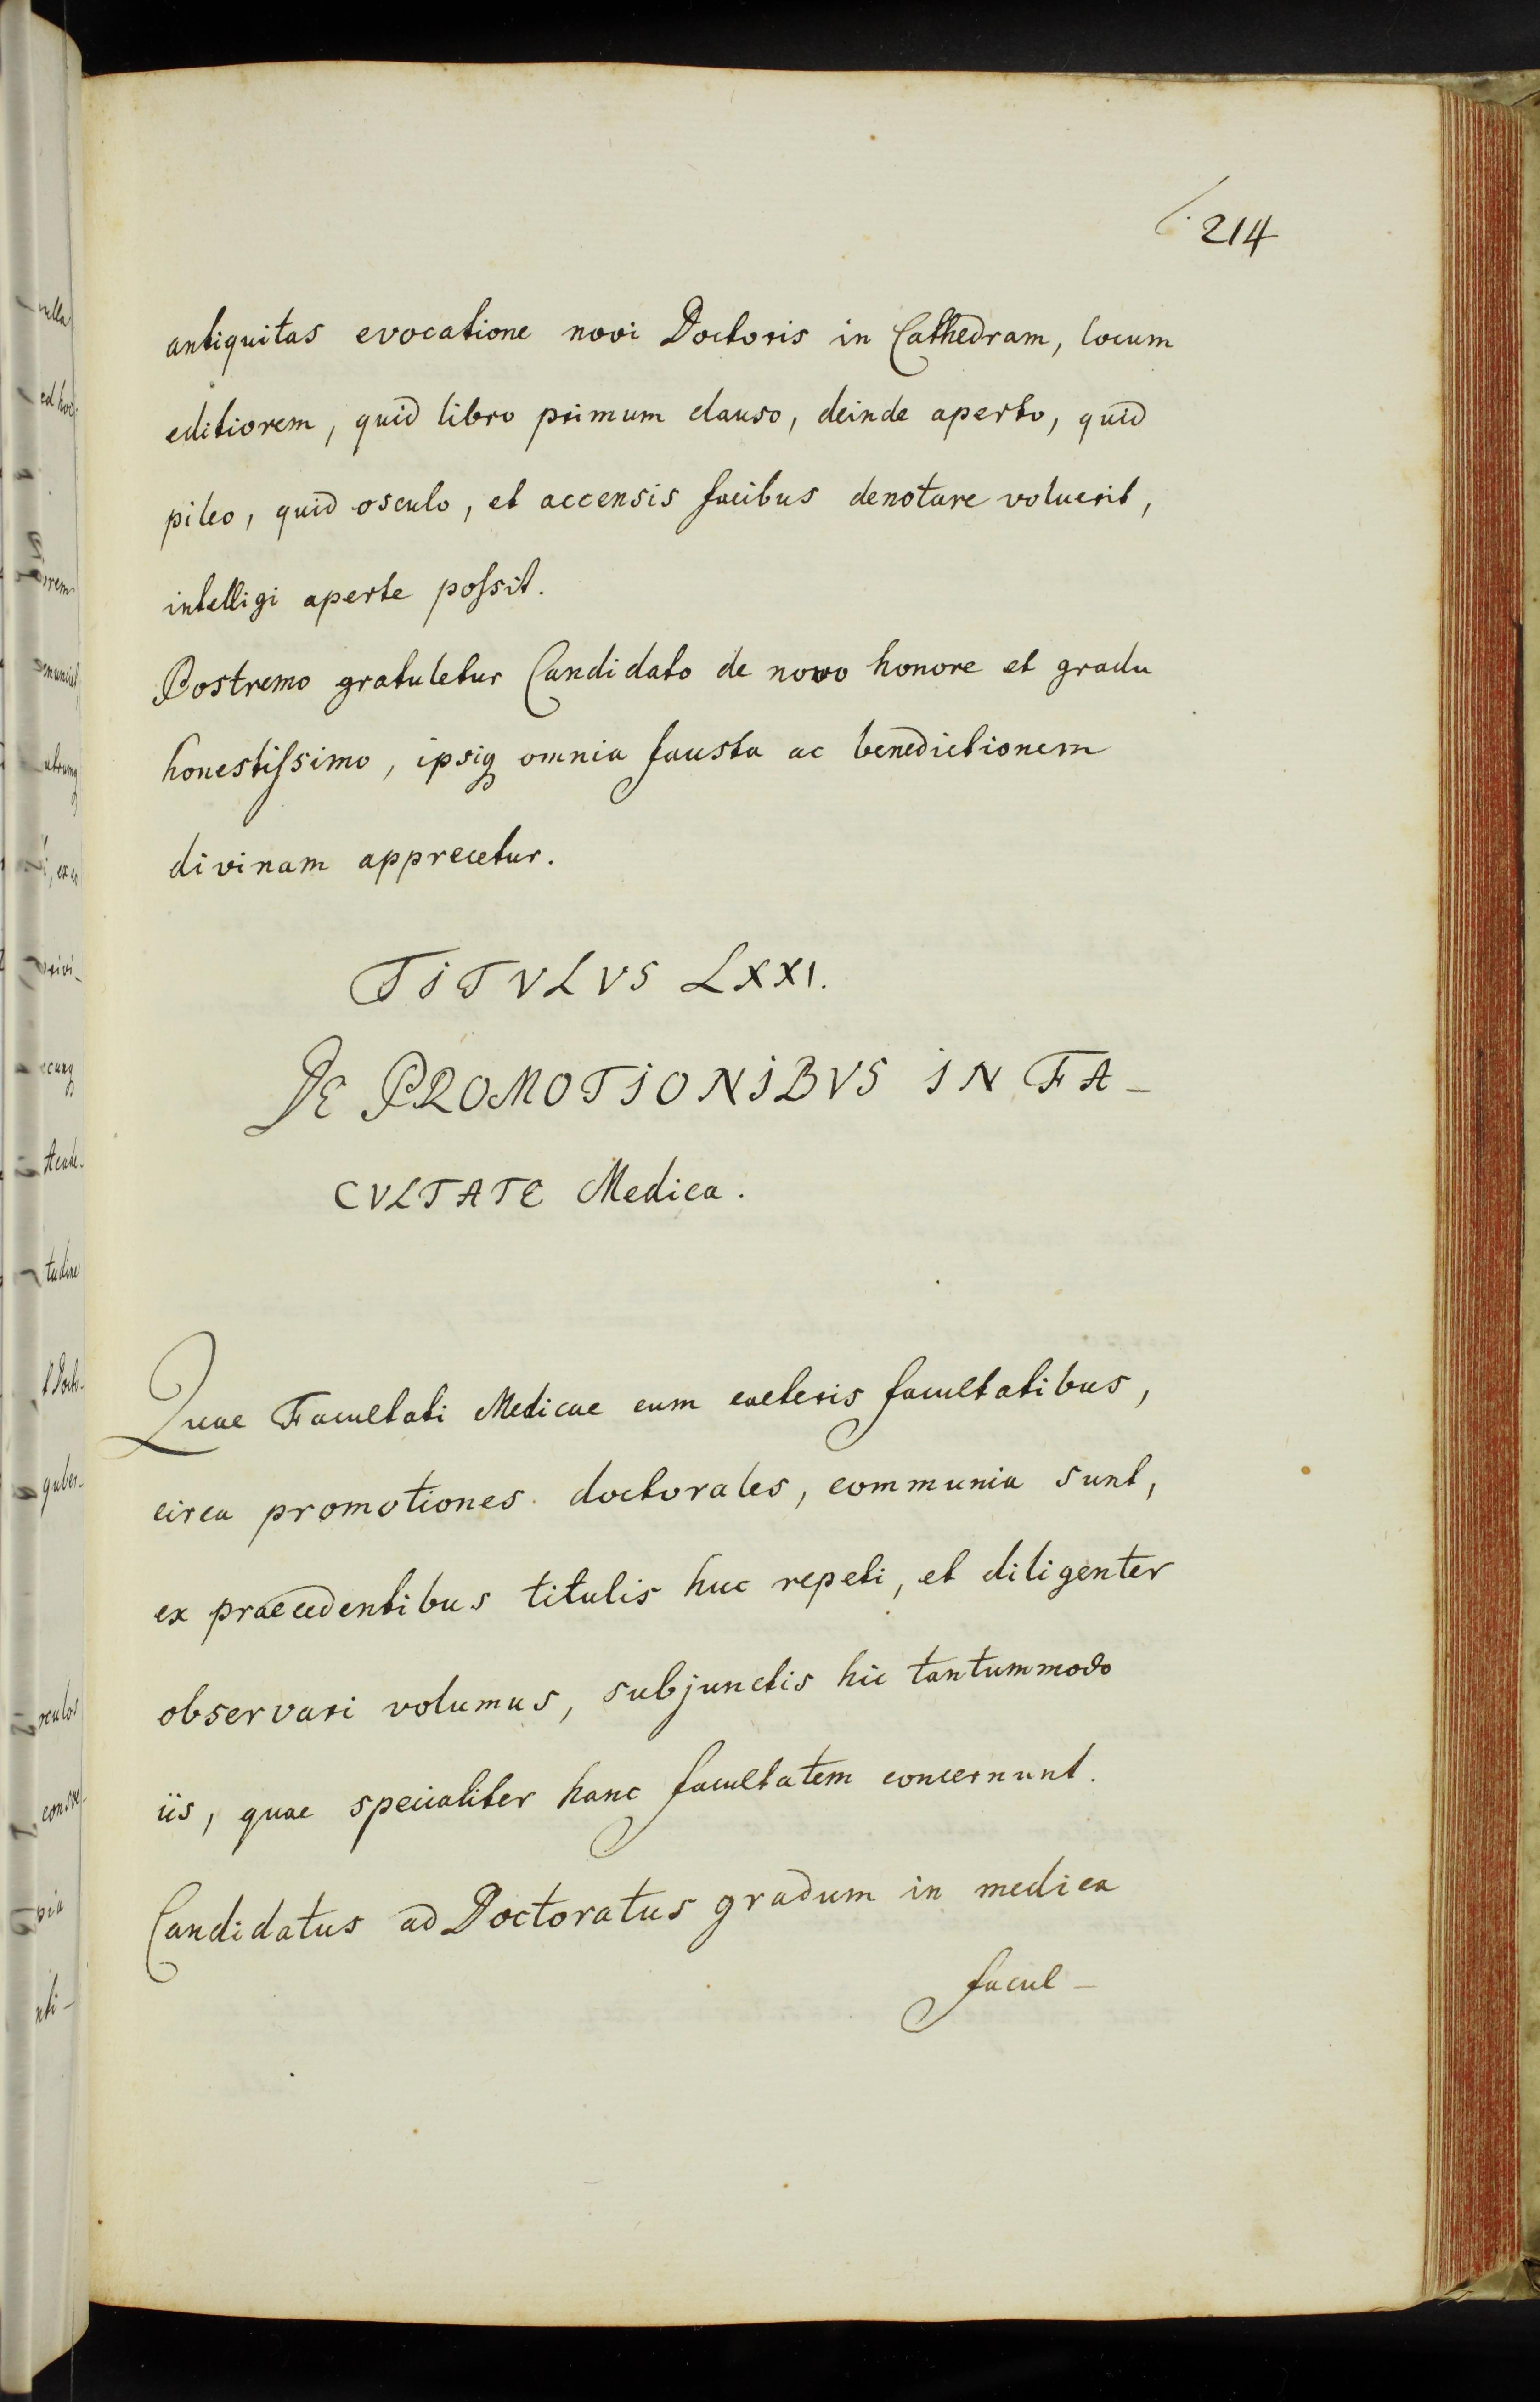 214
antiquitas evocatione novi Doctoris in Cathedram, locum
editiorem, quid libro primum clauso, deinde aperto, quid
pileo, quid osculo, et accensis facibus denotare voluerit,
intelligi aperte poſsit.
Postremo gratuletur Candidato de novo honore et gradu
honestiſsimo, ipsiq omnia fausta ac benedictionem
divinam apprecetur.
TITVLVS LXXI.
DE PROMOTIONIBVS IN FA-
CVLTATE Medica.
Quae Facultati Medicae cum caeteris facultatibus,
circa promotiones doctorales, communia sunt,
ex praecedentibus titulis huc repeti, et diligenter
observari volumus, subjunctis hic tantummodo
iis, quae specialiter hanc facultatem concernunt.
Candidatus ad Doctoratus gradum in medica
facul-